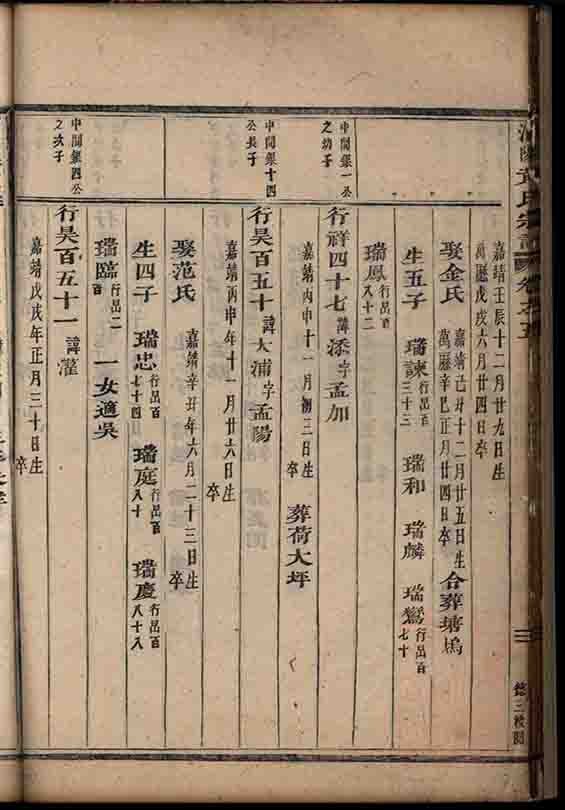 嘉靖壬辰十二月廿九日生
萬曆戊戌六月廿四日卒
娶金氏
嘉靖己丑十二月廿五日生
萬曆辛巳正月廿四日卒
合葬塘塢
生五子 瑞諫行呂百三十三 瑞和 瑞麟 瑞鸞行呂百七十
瑞鳳行呂百八十二
中闊銀一公之幼子
行祥四十七諱添字孟加
嘉靖丙申十一月初三日生
卒
葬荷大坪
中闊銀十四公長子
行昊百五十諱大浦字孟陽
嘉靖丙申年十一月廿六日生
卒
娶范氏
嘉靖辛丑年六月二十三日生
卒
生四子 瑞忠行呂百七十四 瑞庭行呂百八十 瑞慶行呂百八十八
瑞臨行呂二百 一女適吳
中闊銀四公之次子
行昊百五十一諱灌
嘉靖戊戌年正月三十日生
卒